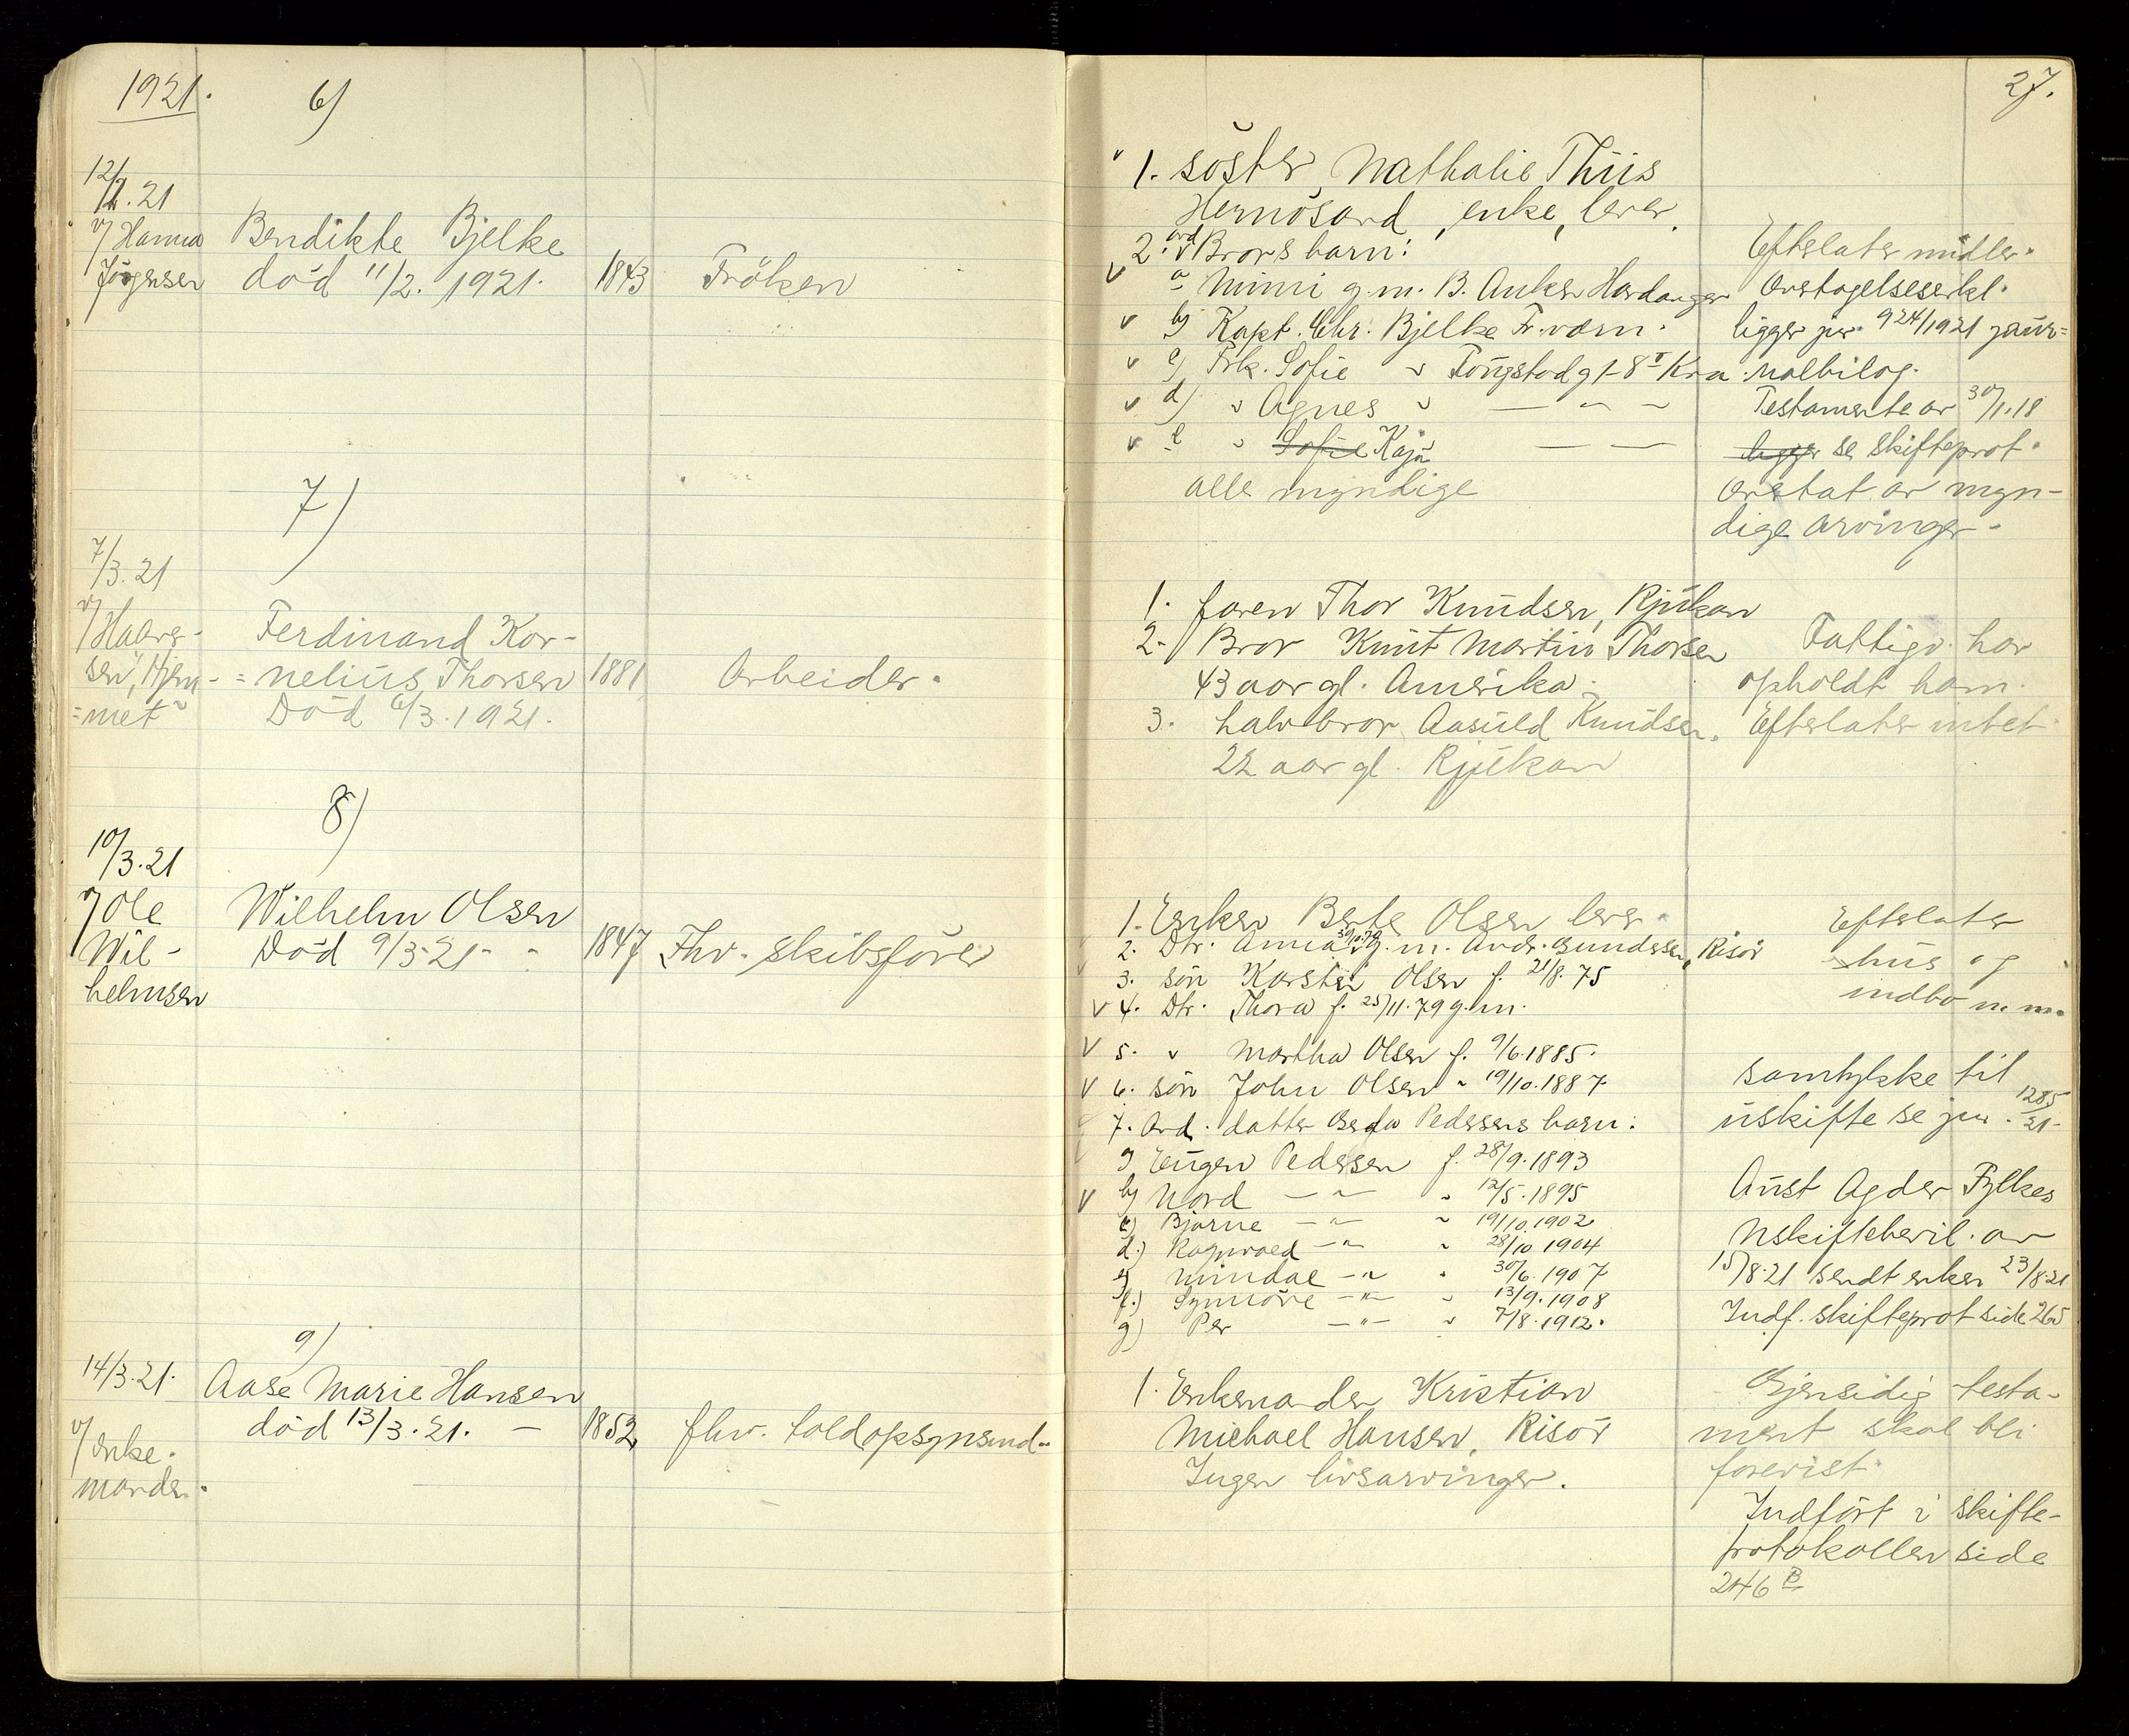 1921.
6)
12/2.21
v/ Hanna
Jörgensen
Bendikte Bjelke
död 11/2. 1921.
1843
Fröken
7)
7/3.21
v/ Haaver-
sen, Hjem-
=met
Ferdinand Kor-
=nelius Thorsen
Död 6/3.1921.
1881
Arbeider.
8)
10/3.21
v/ Ole
Wil-
helmsen
Wilhelm Olsen
Död 9/3.21.
1847
Fhv. skibsförer
9)
14/3.21.
v/ enke-
manden.
Aase Marie Hansen
död 13/3.21. —
1852
fhv. toldopsynsmd.
27.
1. söster, Nathalie Thiis
Hernösand, enke, lever.
2. avd Brors barn:
a Mimi g.m. B. Anker Hardanger
b) Kapt. Chr. Bjelke Fr.værn.
c) Frk. Sofie " gt 8 I Kra.
d) " Agnes " — " —
e " Sofie Kaja — —
alle myndige
Efterlater midler.
Overtagelseserkl.
ligger jur. 924/1921 jour=
nalbilag.
Testamente av 30/1.18
ligger se skifteprot.
Overtat av myn-
dige arvinger.
1. faren Thor Knudsen, Rjukan
2. Bror Knut Martin Thorsen
43 aar gl. Amerika.
3. halvbror Aasuld Knudsen,
22 aar gl. Rjukan
Fattigv. har
opholdt ham.
Efterlater intet
1. Enken Berte Olsen lever.
2. Dtr. Anna g.m. Andr. Gundersen, Risör
3. sön Karsten Olsen f. 21/8.75
4. Dtr. Thora f. 25/11.79 g.m.
5. " Martha Olsen f. 9/6.1885.
6. sön John Olsen " 19/10.1887
7. Avd. datter Berta Pedersens barn:
a) Eugen Pedersen f. 28/9.1893
b) Nord — " — " 12/5.1895
c) Bjarne — " — " 19/10.1902
d.) Ragnvald — " — " 28/10 1904
e) Mindal — " — " 30/6.1907
f.) Synnöve — " — " 13/9.1908
g) Per — " — " 7/8.1912.
Efterlater
hus og
indbo m.m.
samtykke til
uskifte se jur. 1285/21.
Aust Agder Fylkes
Uskiftebevil. av
15/8.21 sendt enken 23/8.21
Indf. skifteprot side 265
1. Enkemanden Kristian
Michael Hansen, Risör
Ingen livsarvinger.
Gjensidig testa-
ment skal bli
forevist.
Indfört i skifte-
protokollen side
246 B